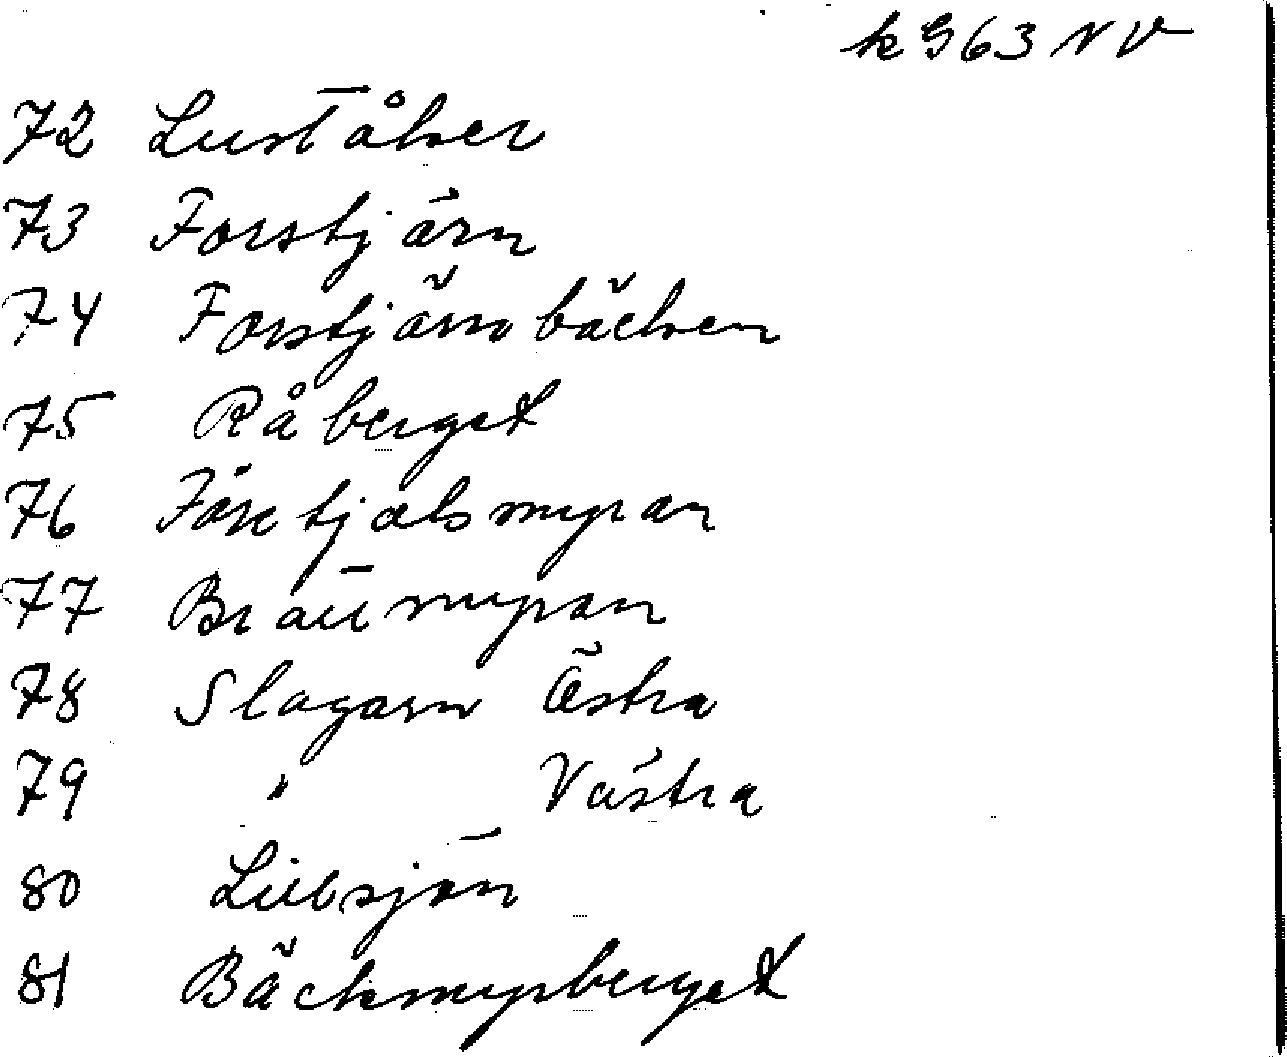 k G 63 NV
72 Luståker
73 Forstjärn
74 Forstjärnbäcken
75 Råberget
76 myran
77 myran
78 Slagarn Östra
79 " Västra
80
81 Bäckmyrberget